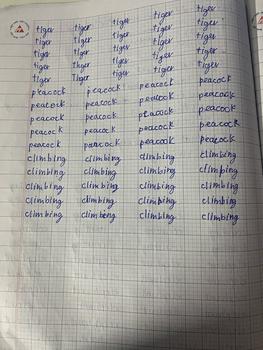 tiger tiger tiger tiger tiger
tiger tiger tiger tiger tiger
tiger tiger tiger tiger tiger
tiger tiger tiger tiger tiger
tiger Tiger tiger tiger tiger
peacock peacock peacock peacock
peacock peacock peacock peacock
peacock peacock peacock peacock
peacock peacock peacock peacock
peacock peacock peacock peacock
climbing climbing climbing climbing
climbing climbing climbing climbing
climbing climbing climbing climbing
climbing climbing climbing climbing
climbing climbing climbing climbing